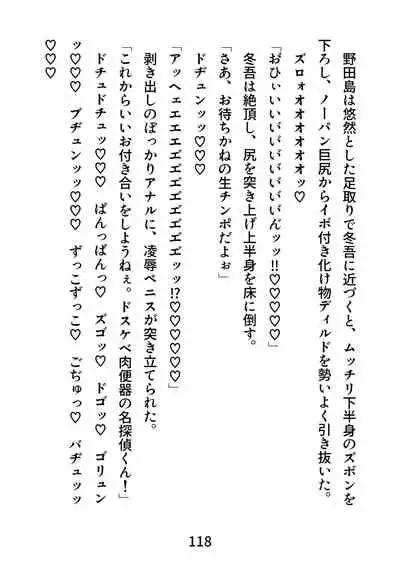 野田島は悠然とした足取りで冬吾に近づくと、ムッチリ下半身のズボンを
下ろし、ノーパン巨尻からイボ付き化け物ディルドを勢いよく引き抜いた。
　ズロォオオオオオオッ♡
「お゛ひぃいい゛い゛い゛い゛い゛い゛い゛ん゛ッッ!!♡♡♡♡♡」
　冬吾は絶頂し、尻を突き上げ上半身を床に倒す。
「さあ、お待ちかねの生チンポだよぉ」
　ドヂュンッッ♡♡♡
「アッヘェエエエ゛エ゛エ゛エ゛エ゛エ゛エ゛ッッ!?♡♡♡♡♡」
　剥き出しのぽっかりアナルに、凌辱ペニスが突き立てられた。
「これからいいお付き合いをしようねぇ。ドスケベ肉便器の名探偵くん！」
　ドチュドチュッ♡♡♡　ぱんっぱんっ♡　ズゴッ♡　ドゴッ♡　ゴリュン
ッ♡♡♡　ブヂュンッッ♡♡♡　ずっこずっこ♡　ごぢゅっ♡　バヂュッッ
♡♡♡
118